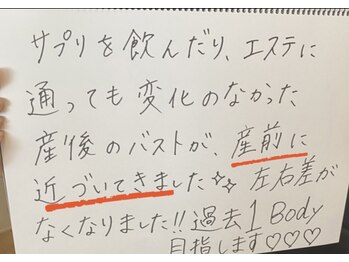 サプリを飲んだり、エステに
通っても変化のなかった
産後のバストが、産前に
近づいてきました✨ 左右差が
なくなりました!!過去1 Body
目指します♡♡♡